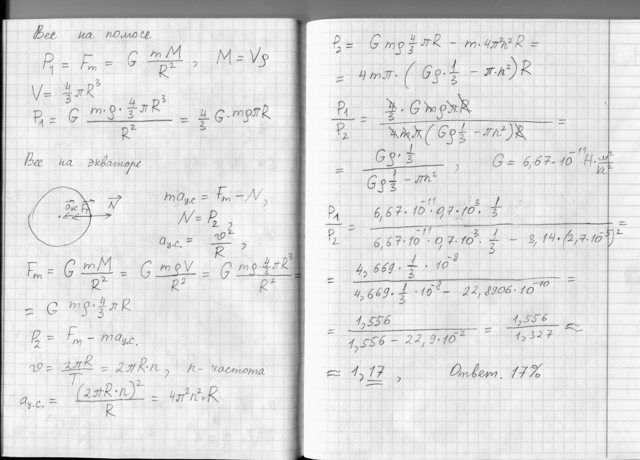 Вес на полюсе
P₁ = Fт = G mM/R² , M = Vρ
V = 4/3 πR³
P₁ = G (m·ρ·4/3 πR³)/R² = 4/3 G·mρπR
Вес на экваторе
aц.с. Fт N
maц.с. = Fт − N,
N = P₂,
aц.с. = v²/R,
Fт = G mM/R² = G mρV/R² = G (mρ·4/3 πR³)/R² =
= G mρ·4/3 πR
P₂ = Fт − maц.с.
v = 2πR/T = 2πR·n, n - частота
aц.с. = (2πR·n)²/R = 4π²n²·R
P₂ = G mρ 4/3 πR − m·4π²n²R =
= 4mπ·(Gρ·1/3 − π·n²)R
P₁/P₂ = (4/3·G mρπR)/(4mπ(Gρ 1/3 − πn²)R) =
= (Gρ·1/3)/(Gρ 1/3 − πn²) , G = 6,67·10⁻¹¹ Н·м²/кг²
P₁/P₂ = (6,67·10⁻¹¹·0,7·10³·1/3)/(6,67·10⁻¹¹·0,7·10³·1/3 − 3,14·(2,7·10⁻⁵)²) =
= (4,669·1/3·10⁻⁸)/(4,669·1/3·10⁻⁸ − 22,8906·10⁻¹⁰) =
= 1,556/(1,556 − 22,9·10⁻²) = 1,556/1,327 ≈
≈ 1,17 , Ответ. 17%